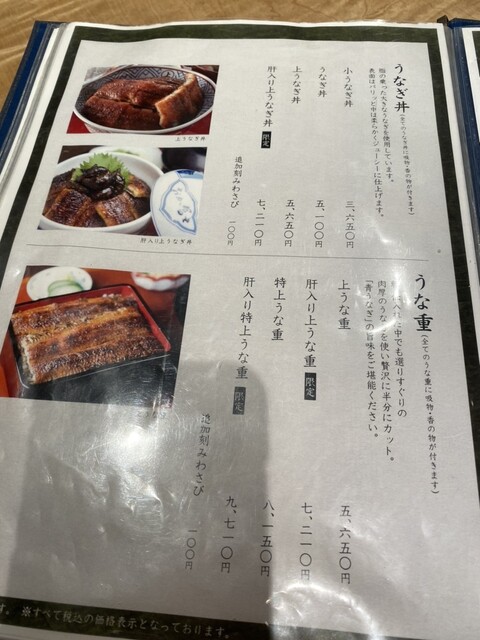 うなぎ丼(全てのうなぎ丼に吸物・香の物が付きます)
脂の乗った大きなうなぎを使用しています。
表面はパリッと中は柔らかくジューシーに仕上げます。
小うなぎ丼 三、六五〇円
うなぎ丼 五、一〇〇円
上うなぎ丼 五、六五〇円
肝入り上うなぎ丼 限定 七、二一〇円
追加刻みわさび 一〇〇円
上うなぎ丼
肝入り上うなぎ丼
うな重(全てのうな重に吸物・香の物が付きます)
中でも選りすぐりの
肉厚のうな を使い贅沢に半分にカット。
「青うなぎ」の旨味をご堪能ください。
上うな重 五、六五〇円
肝入り上うな重 限定 七、二一〇円
特上うな重 八、一五〇円
肝入り特上うな重 限定 九、七一〇円
追加刻みわさび 一〇〇円
す。 ※すべて税込の価格表示となっております。